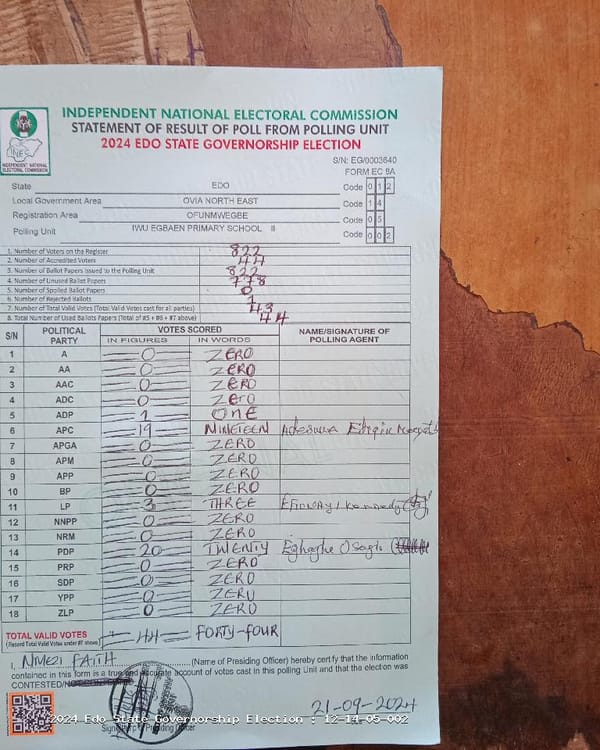 INDEPENDENT NATIONAL ELECTORAL COMMISSION
STATEMENT OF RESULT OF POLL FROM POLLING UNIT
2024 EDO STATE GOVERNORSHIP ELECTION
INEC
INDEPENDENT NATIONAL ELECTORAL COMMISSION
S/N: EG/0003640
FORM EC 8A
State EDO Code 0 1 2
Local Government Area OVIA NORTH EAST Code 1 4
Registration Area OFUNMWEGBE Code 0 5
Polling Unit IWU EGBAEN PRIMARY SCHOOL II Code 0 0 2
1. Number of Voters on the Register 822
2. Number of Accredited Voters 44
3. Number of Ballot Papers Issued to the Polling Unit 822
4. Number of Unused Ballot Papers 778
5. Number of Spoiled Ballot Papers 0
6. Number of Rejected Ballots 1
7. Number of Total Valid Votes (Total Valid Votes cast for all parties) 43
8. Total Number of Used Ballots Papers (Total of #5 + #6 + #7 above) 44
S/N POLITICAL PARTY VOTES SCORED NAME/SIGNATURE OF POLLING AGENT
IN FIGURES IN WORDS
1 A 0 ZERO
2 AA 0 ZERO
3 AAC 0 ZERO
4 ADC 0 ZERO
5 ADP 1 ONE
6 APC 19 NINETEEN
7 APGA 0 ZERO
8 APM 0 ZERO
9 APP 0 ZERO
10 BP 0 ZERO
11 LP 3 THREE
12 NNPP 0 ZERO
13 NRM 0 ZERO
14 PDP 20 TWENTY Eghaghe Osagie
15 PRP 0 ZERO
16 SDP 0 ZERO
17 YPP 0 ZERO
18 ZLP 0 ZERO
TOTAL VALID VOTES 44 FORTY-FOUR
(Record Total Valid Votes under #7 above)
I, FAITH (Name of Presiding Officer) hereby certify that the information
contained in this form is a true and accurate account of votes cast in this polling Unit and that the election was
CONTESTED/
21-09-2024
2024 Edo State Governorship Election : 12-14-05-002